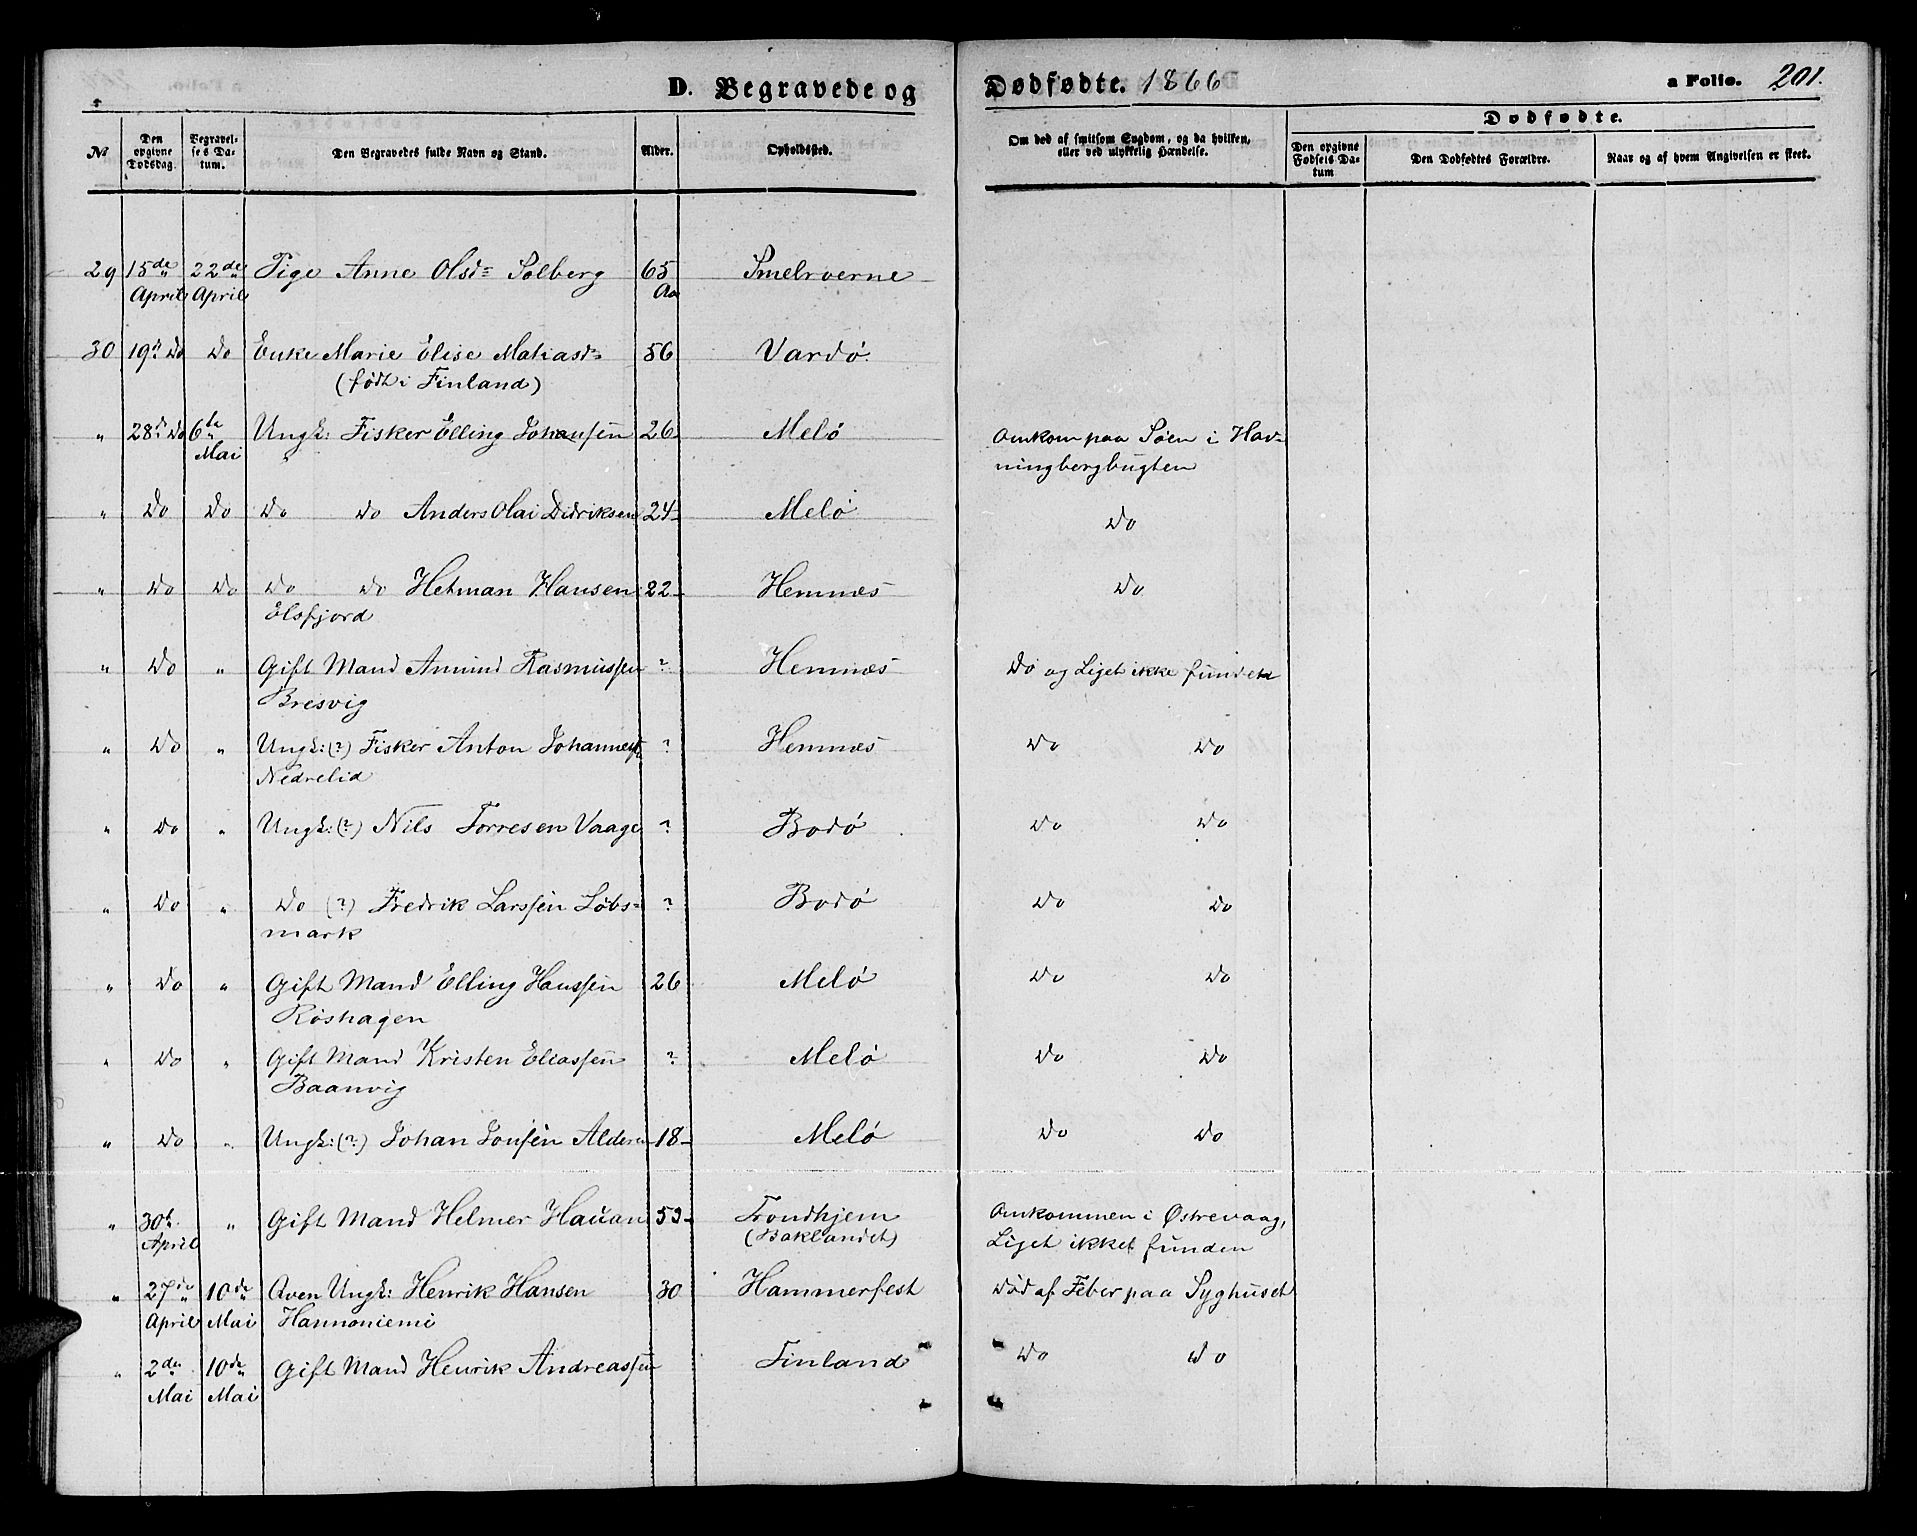 D. Begravede og Dødfødte. 1866 a Folio. 201.
No | Den opgivne Dødsdag. | Begravelses Datum. | Den Begravedes fulde Navn og Stand. | Alder. | Opholdssted. | Om død af smitsom Sygdom, og da hvilken, eller ved ulykkelig Hændelse. | Dødfødte.
Den opgivne Fødsels Datum | Den Dødfødtes Forældre. | Naar og af hvem Angivelsen er skeet.
29 15de 22de Pige Anne Olsd= Solberg 65 Smelrverne
April April Aa
30 19d Do Do Enke Marie Elise Matiasd= 56 Vardø
(født i Finland)
" 28d Do 6te Ungk: Fisker Elling Johansen 26 Melø Omkom paa Søen i Hav-
Mai ningbergbugten
" Do Do Do Do Anders Olai Didriksen 24 Melø Do
" Do Do Do Do Hetman Hansen 22 Hemnæs Do
Elsfjord
" Do " Gift Mand Amund Rasmussen ? Hemnæs Do og Liget ikke fundet
Bresvig
" Do " Ungk: (?) Fisker Anton Johannes ? Hemnæs Do Do
Nedrelid
" Do " Ungk: (?) Nils Torresen Vaage ? Bodø Do Do
" Do " Do (?) Fredrik Larssen Løbs= ? Bodø Do Do
mark
" Do " Gift Mand Elling Hanssen 26 Melø Do Do
Røshagen
" Do " Gift Mand Kristen Eliassen ? Melø Do Do
Baanvig
" Do " Ungk: (?) Johan Jonsen Aldern 18 Melø Do Do
" 30t " Gift Mand Helmer Hauan 53 Trondhjem Omkommen i Østrevaag,
April (Baklandet) Liget ikket funden
" 27de 10de Qven Ungk: Henrik Hansen 30 Hammerfest Død af Feber paa Syghuset
April Mai Hannoniemi
" 2den 10de Gift Mand Henrik Andreassen Finland Do Do
Mai Mai